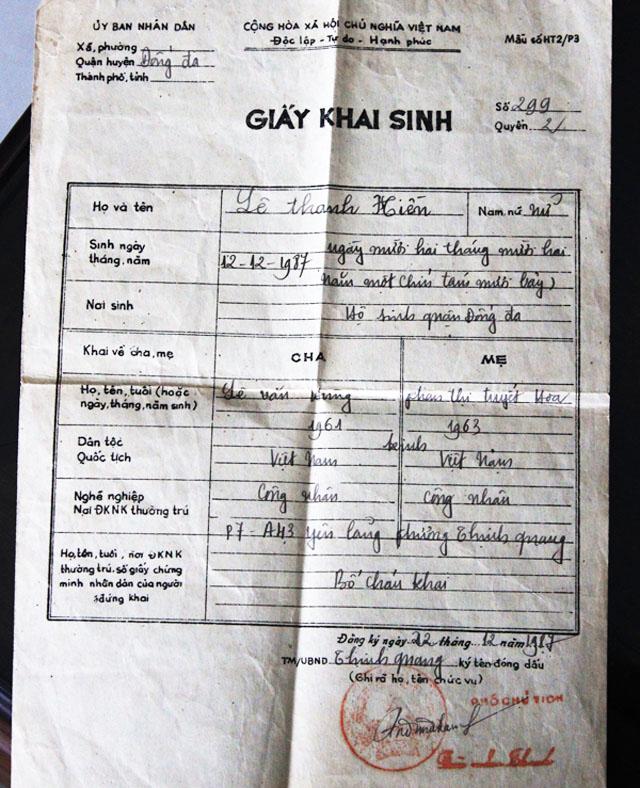 ỦY BAN NHÂN DÂN
Xã, phường
Quận huyện Đống đa
Thành phố, tỉnh
CỘNG HÒA XÃ HỘI CHỦ NGHĨA VIỆT NAM
Độc lập - Tự do - Hạnh phúc
Mẫu số HT2/P3
GIẤY KHAI SINH
Số 299
Quyển 2/
Họ và tên
Lê thanh Hiền
Nam, nữ nữ
Sinh ngày tháng, năm
12-12-1987 ngày mười hai tháng mười hai
năm một chín tám mươi bảy)
Nơi sinh
Hộ sinh quận Đống đa
Khai về cha, mẹ
CHA
MẸ
Họ, tên, tuổi (hoặc ngày, tháng, năm sinh)
Lê văn
phan thị tuyết Hoa
1961
1963
Dân tộc
kinh
Quốc tịch
Việt Nam
Việt Nam
Nghề nghiệp
Công nhân
công nhân
Nơi ĐKNK thường trú
P7 - A43 Yên lãng phường Thịnh quang
Họ, tên, tuổi, nơi ĐKNK thường trú, số giấy chứng minh nhân dân của người đứng khai
Bố cháu khai
Đăng ký ngày 22 tháng 12 năm 1987
TM/UBND Thịnh quang ký tên đóng dấu
(Ghi rõ họ, tên chức vụ)
PHÓ CHỦ TỊCH